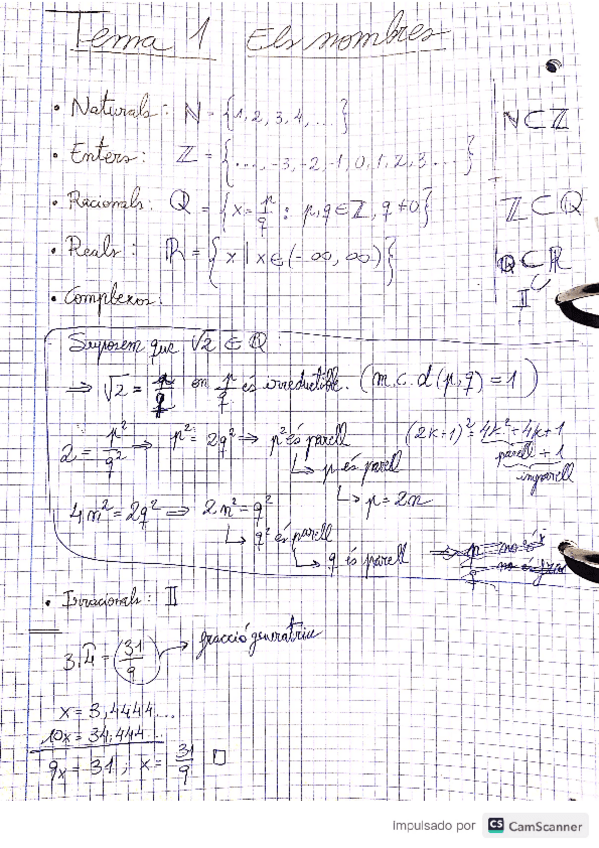 Tema 1 Els nombres
• Naturals: ℕ = {1, 2, 3, 4, ...} ℕ⊂ℤ
• Enters: ℤ = {..., -3, -2, -1, 0, 1, 2, 3...}
• Racionals: ℚ = {x = p/q : p, q ∈ ℤ, q ≠ 0} ℤ⊂ℚ
• Reals: ℝ = {x | x ∈ (-∞, ∞)} ℚ⊂ℝ
𝕀
• Complexos:
Suposem que √2 ∈ ℚ:
⇒ √2 = p/q on p/q és irreductible. (m.c.d (p, q) = 1)
2 = p²/q² ⇒ p² = 2q² ⇒ p² és parell (2k+1)² = 4k² + 4k + 1
parell + 1
↳ p és parell imparell
↳ p = 2n
4n² = 2q² ⇒ 2n² = q²
↳ q² és parell
↳ q és parell ⇒
• Irracionals: 𝕀
3.4̂ = 31/9 → fracció generatriu
x = 3,4444...
10x = 34,444...
9x = 31; x = 31/9 □
Impulsado por CS CamScanner